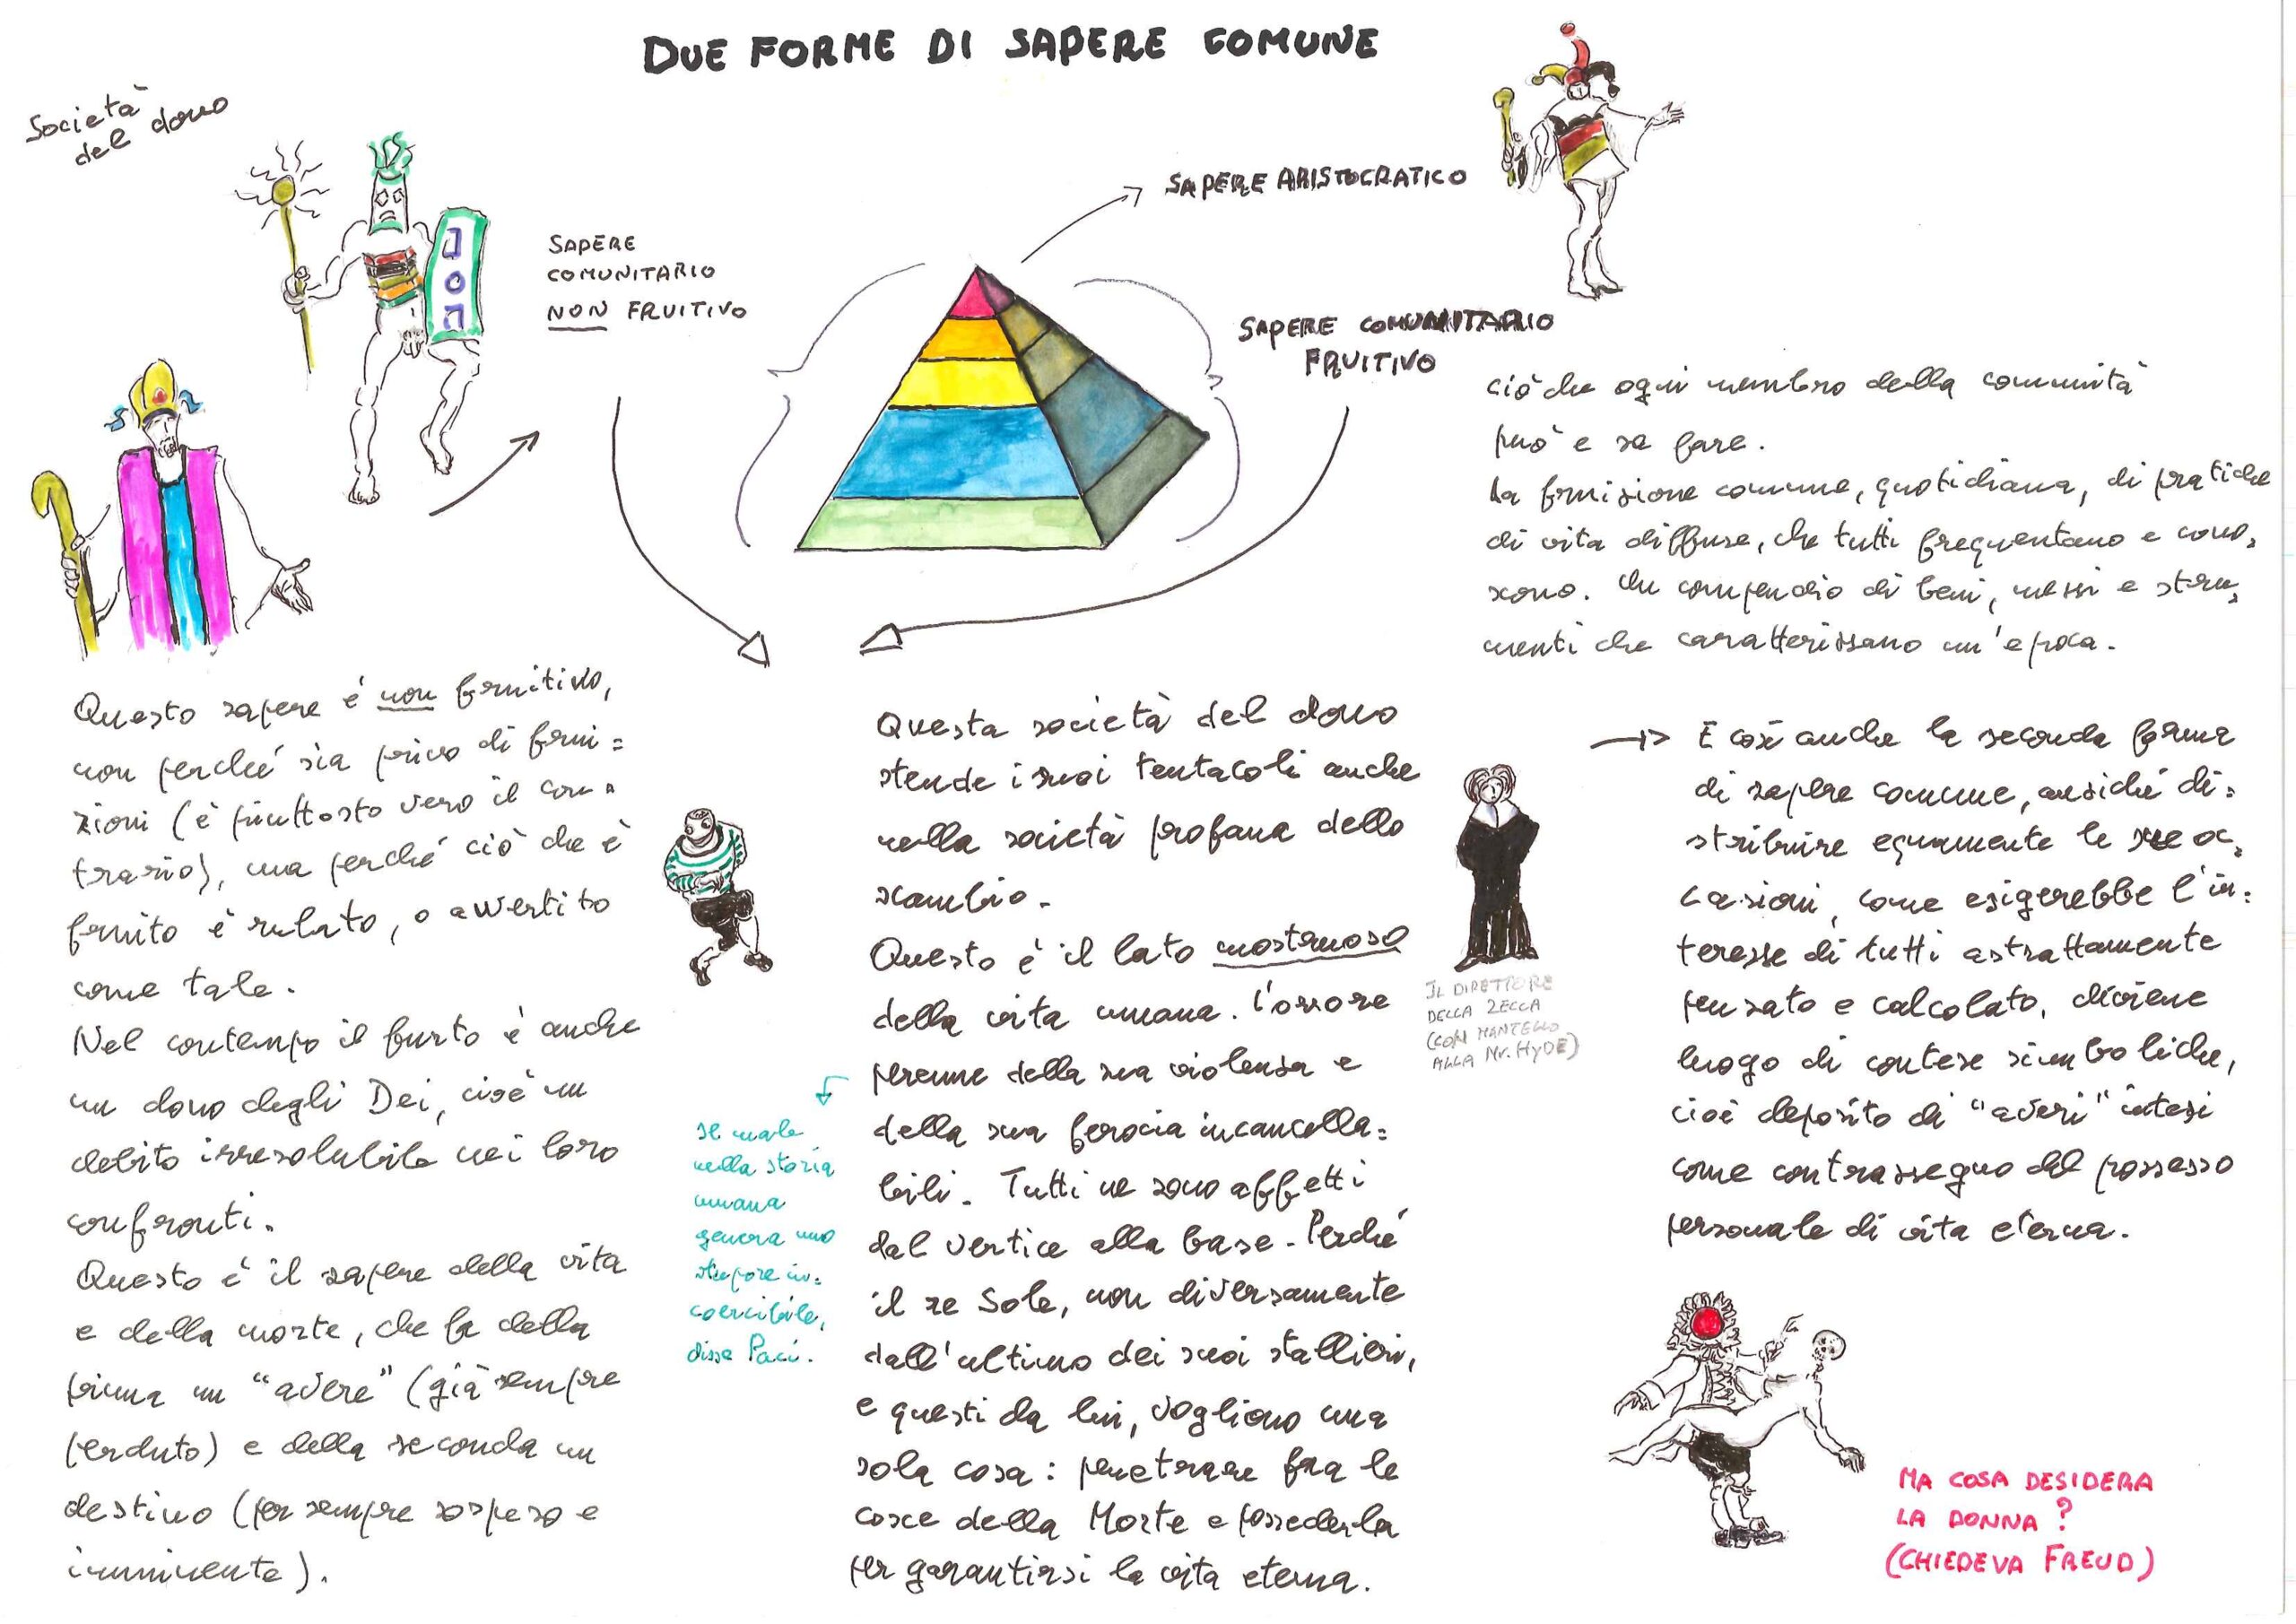 DUE FORME DI SAPERE COMUNE
Società
del dono
SAPERE
COMUNITARIO
NON FRUITIVO
SAPERE ARISTOCRATICO
SAPERE COMUNITARIO
FRUITIVO
ciò che ogni membro della comunità
può e sa fare.
La fruizione comune, quotidiana, di pratiche
di vita diffuse, che tutti frequentano e cono=
scono. Un compendio di beni, messi e stru=
menti che caratterizzano un'epoca.
Questo sapere è non fruitivo,
non perché sia privo di frui=
zioni (è piuttosto vero il con=
trario), ma perché ciò che è
fruito è rubato, o avvertito
come tale.
Nel contempo il furto è anche
un dono degli Dei, cioè un
debito irresolubile nei loro
confronti.
Questo è il sapere della vita
e della morte, che fa della
prima un "avere" (già sempre
perduto) e della seconda un
destino (per sempre sospeso e
imminente).
Questa società del dono
stende i suoi tentacoli anche
nella società profana dello
scambio.
Questo è il lato mostruoso
della vita umana. L'orrore
perenne della sua violenza e
della sua ferocia incancella=
bili. Tutti ne sono affetti
dal vertice alla base. Perché
il re Sole, non diversamente
dall'ultimo dei suoi stallieri,
e questi da lui, vogliono una
sola cosa: penetrare fra le
cosce della Morte e possederla
per garantirsi la vita eterna.
Il male
nella storia
umana
genera uno
stupore in=
coercibile,
disse Paci.
IL DIRETTORE
DELLA ZECCA
(CON MANTELLO
ALLA Mr. HYDE)
E così anche la seconda forma
di sapere comune, anziché di=
stribuire equamente le sue oc=
casioni, come esigerebbe l'in=
teresse di tutti astrattamente
pensato e calcolato, diviene
luogo di contese simboliche,
cioè deposito di "averi" intesi
come contrassegno del possesso
personale di vita eterna.
MA COSA DESIDERA
LA DONNA?
(CHIEDEVA FREUD)